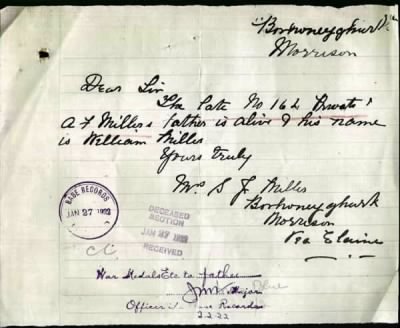 "Borhoneyghurk"
Morrison
Dear Sir
The Late No 162 Private
A F Millis's father is alive & his name
is William Millis
Yours Truly
Mrs S J Millis
Borhoneyghurk
Morrison
Via Elaine
BASE RECORDS
JAN 27 1922
DECEASED
SECTION
JAN 27 1922
RECEIVED
War Medals Etc to father
Major
Officer i/c Base Records
2.2.22